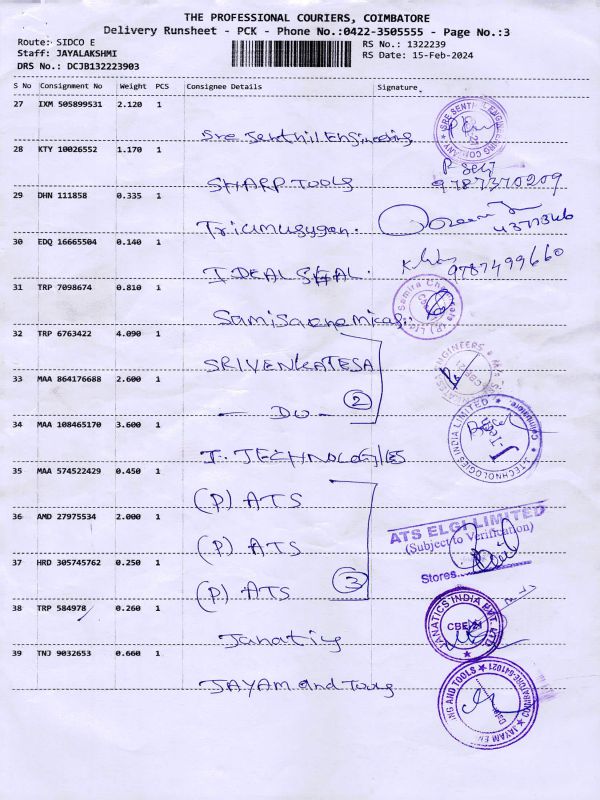 THE PROFESSIONAL COURIERS, COIMBATORE
Delivery Runsheet - PCK - Phone No.:0422-3505555 - Page No.:3
Route: SIDCO E
Staff: JAYALAKSHMI
DRS No.: DCJB132223903
RS No.: 1322239
RS Date: 15-Feb-2024
S No Consignment No Weight PCS Consignee Details Signature
27 IXM 505899531 2.120 1
Sre Senthil Engineering
28 KTY 10026552 1.170 1
SHARP TOOLS 9787370209
29 DHN 111858 0.335 1
Tirumurugan.
30 EDQ 16665504 0.140 1
IDEAL SEAL. 9787499660
31 TRP 7098674 0.810 1
32 TRP 6763422 4.090 1
SRIVENKATESA
33 MAA 864176688 2.600 1
- DO - 2
34 MAA 108465170 3.600 1
J. TECHNOLOGIES
J.TECHNOLOGIES INDIA LIMITED
Coimbatore
35 MAA 574522429 0.450 1
(P) ATS
36 AMD 27975534 2.000 1
(P) ATS
ATS ELGI LIMITED
(Subject to Verification)
Stores
37 HRD 305745762 0.250 1
(P) ATS 3
38 TRP 584978 0.260 1
JANATICS INDIA PVT. LTD
CBE-21
39 TNJ 9032653 0.660 1
JAYAM and Tools